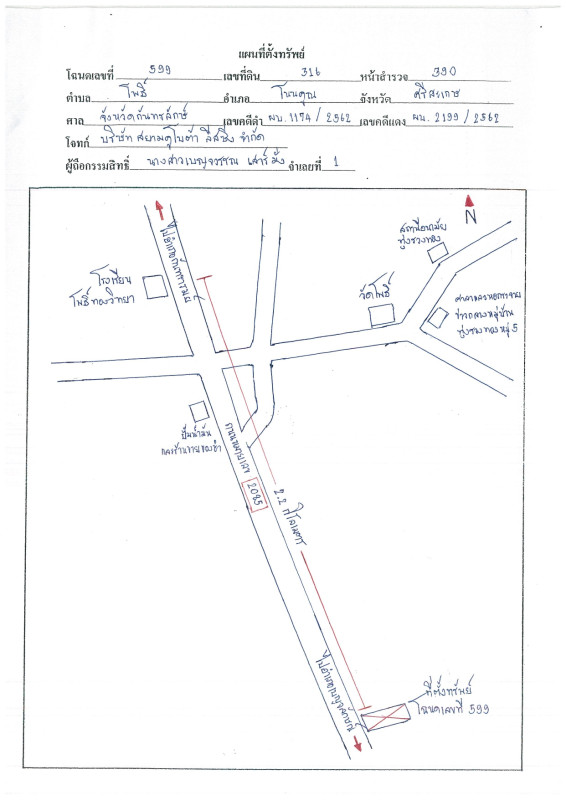 แผนที่ตั้งทรัพย์
โฉนดเลขที่ 599 เลขที่ดิน 316 หน้าสำรวจ 390
ตำบล โพธิ์ อำเภอ โนนคูณ จังหวัด ศรีสะเกษ
ศาล จังหวัดกันทรลักษ์ เลขคดีดำ ผบ.1174/2562 เลขคดีแดง ผบ.2199/2562
โจทก์ บริษัท สยามคูโบต้า ลีสซิ่ง จำกัด
ผู้ถือกรรมสิทธิ์ นางสาวเบญจวรรณ เสาร์ จำเลยที่ 1
N
ไปอำเภอกันทรารมย์
สถานีอนามัย
ทุ่งรวงทอง
โรงเรียน
โพธิ์ทองวิทยา
วัดโพธิ์
ศาลาและหอกระจาย
ข่าวกลางหมู่บ้าน
ทุ่งรวงทองหมู่ 5
ปั๊มน้ำมัน
และร้านขายของชำ
ถนนหมายเลข
2085
2.2 กิโลเมตร
ไปอำเภอเบญจลักษณ์
ที่ตั้งทรัพย์
โฉนดเลขที่ 599